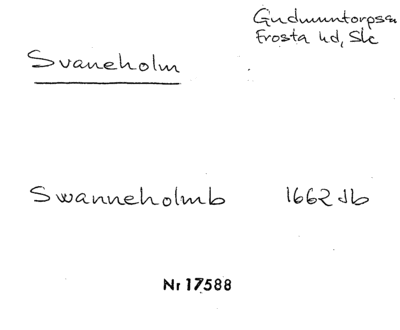 Gudmuntorps sn
Frosta hd, Sk
Svaneholm
Swanneholmb 1662 Jb
Nr 17588